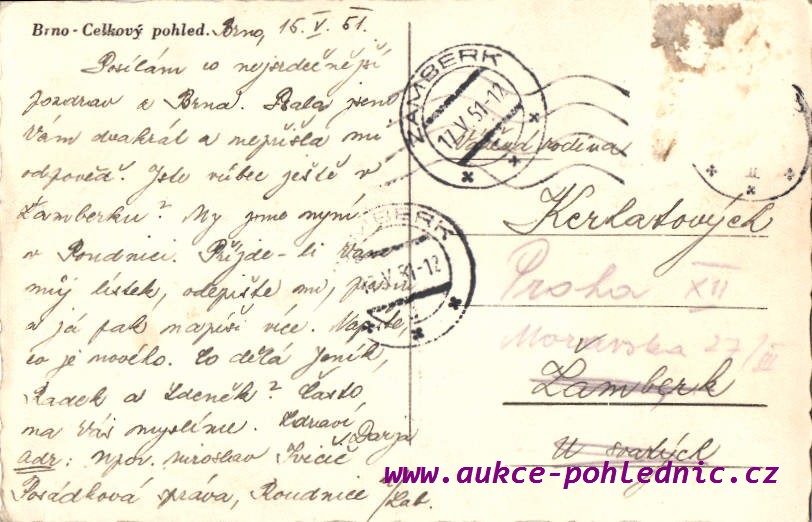 Brno - Celkový pohled. Brno, 15. V. 51.
Posílám co nejsrdečnější
pozdrav z Brna. Psala jsem
Vám dvakrát a nepřišla mi
odpověď. Jste vůbec ještě v
Žamberku? My jsme nyní
v Roudnici. Přijde-li Vám
můj lístek, odepište mi,
a já pak napíši více. Napište,
co je nového. Co dělá Jeník,
Radek a Zdeněk? Často
na Vás myslíme. Zdraví
Darja
adr: npor. Miroslav
Posádková správa, Roudnice
n/Lab.
ŽAMBERK
17.V.51-12
ŽAMBERK
17.V.51-12
Vážená rodina
Kerhatových
Praha XII
Moravska 27/III
Žamberk
U svatých
www.aukce-pohlednic.cz